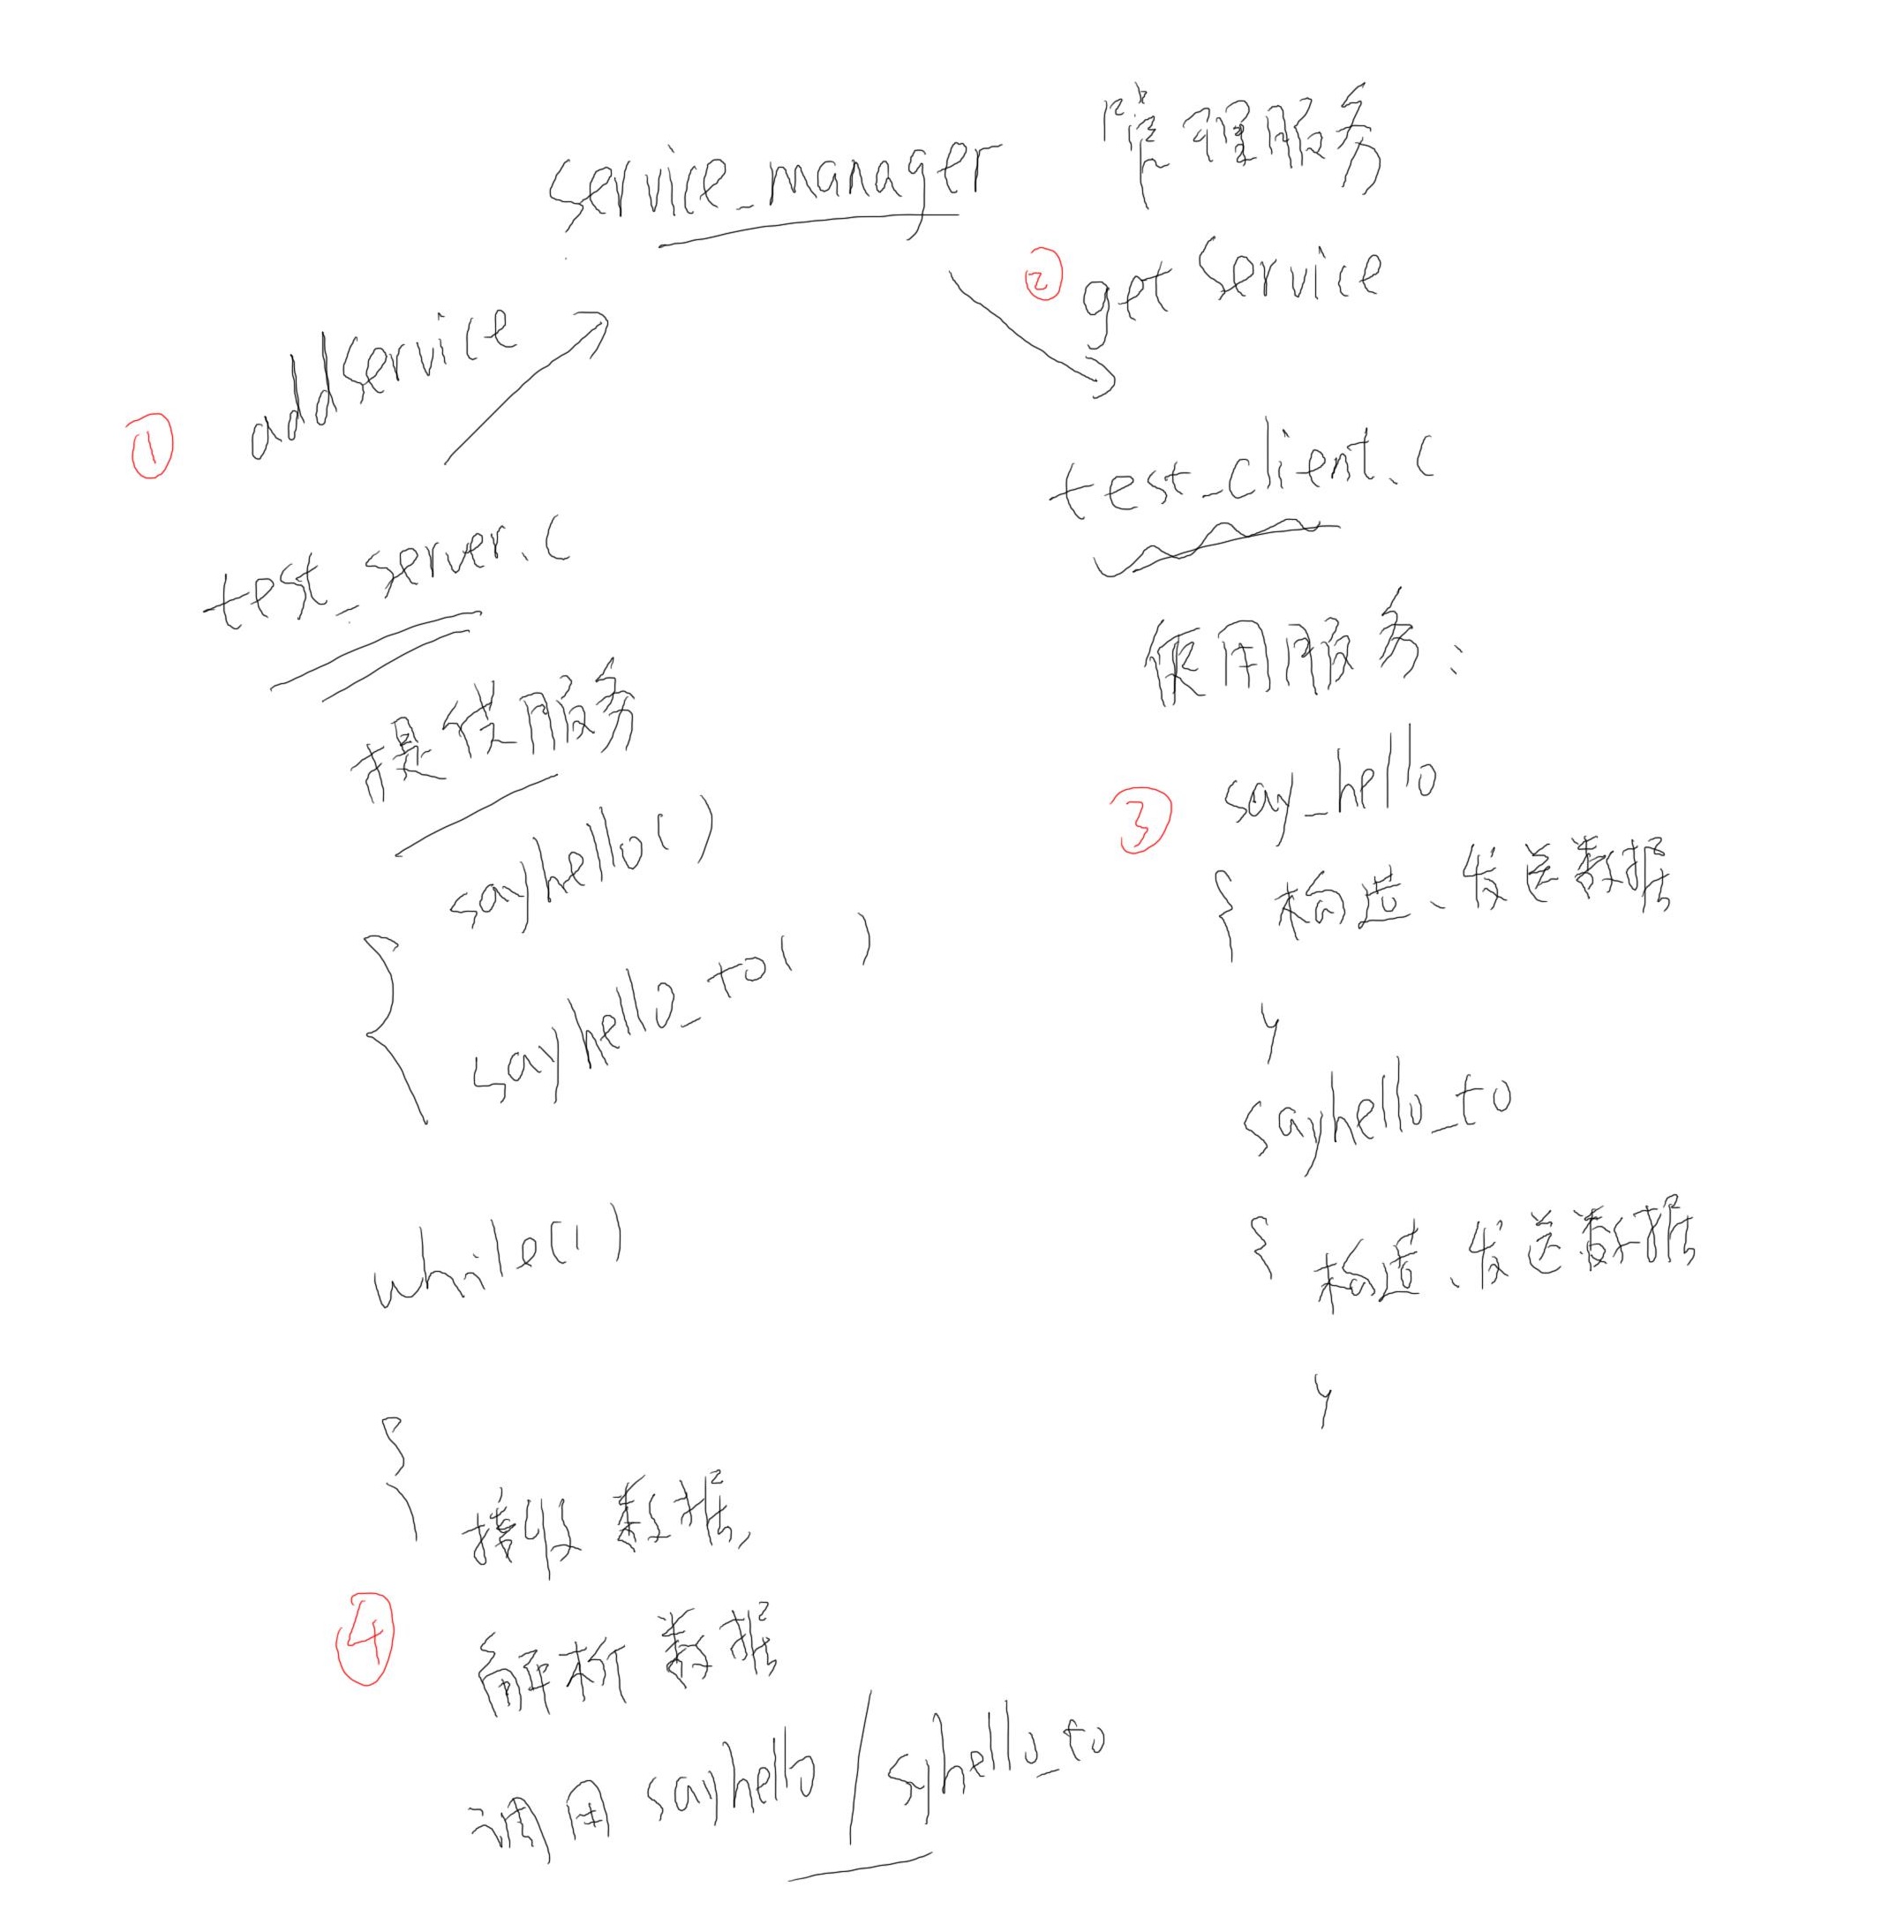 管理服务
service_manager
② get service
addservice
①
test_client.c
test_server.c
使用服务:
提供服务
say_hello
③
sayhello()
{ 构造、发送数据
sayhello_to()
}
sayhello_to
while(1)
{ 构造、发送数据
}
{
接收数据,
④
解析数据
调用 sayhello / syhello_to